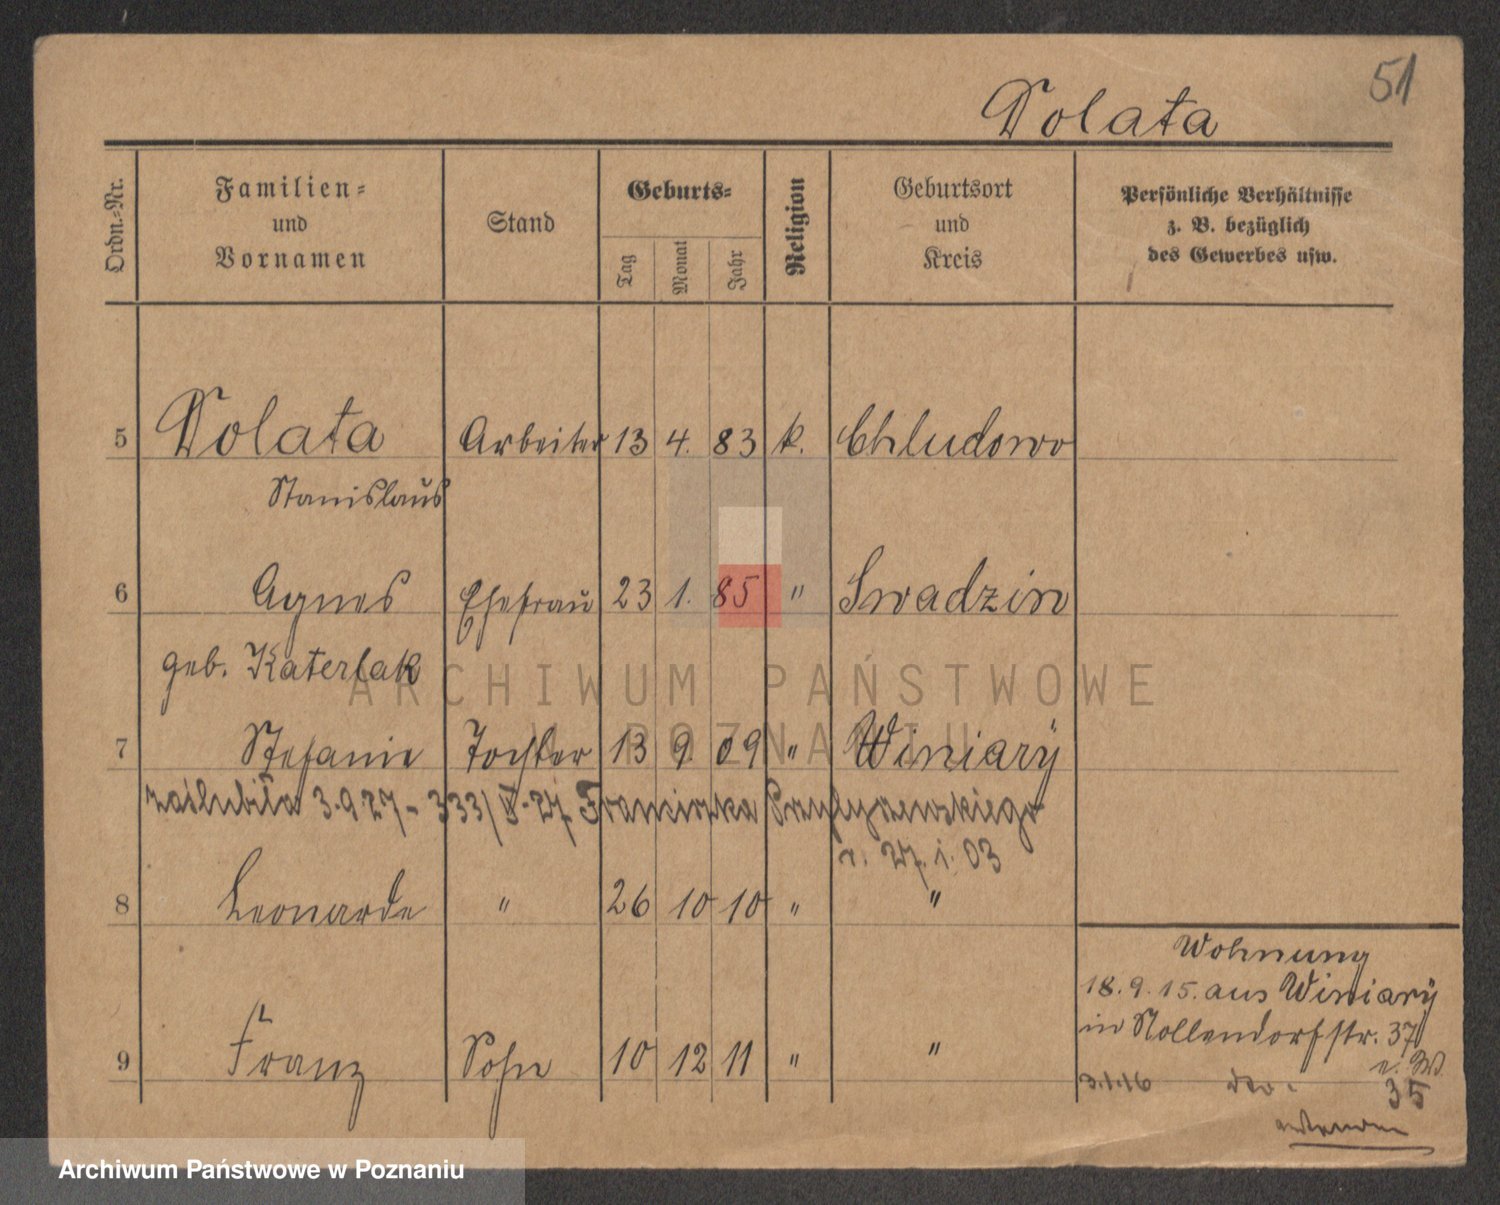 51
Dolata
Ordn.=Nr.
Familien=
und
Vornamen
Stand
Geburts=
Tag
Monat
Jahr
Religion
Geburtsort
und
Kreis
Persönliche Verhältnisse
z. B. bezüglich
des Gewerbes usw.
5 Dolata Arbeiter 13 4. 83 k. Chludowo
Stanislaus
6 Agnes Ehefrau 23 1. 85 " Swadzin
geb. Katerlak
ARCHIWUM PAŃSTWOWE
W POZNANIU
7 Stefanie Tochter 13 9. 09 " Winiary
zaślubiła 3.9 27 - 333/ 27 Franciszka
27. 1. 03
8 Leonarde " 26 10 10 " "
9 Franz Sohn 10 12 11 " "
Wohnung
18.9.15. aus Winiary
in Nollendorfstr. 37
3.1.16 dto. 35
Archiwum Państwowe w Poznaniu